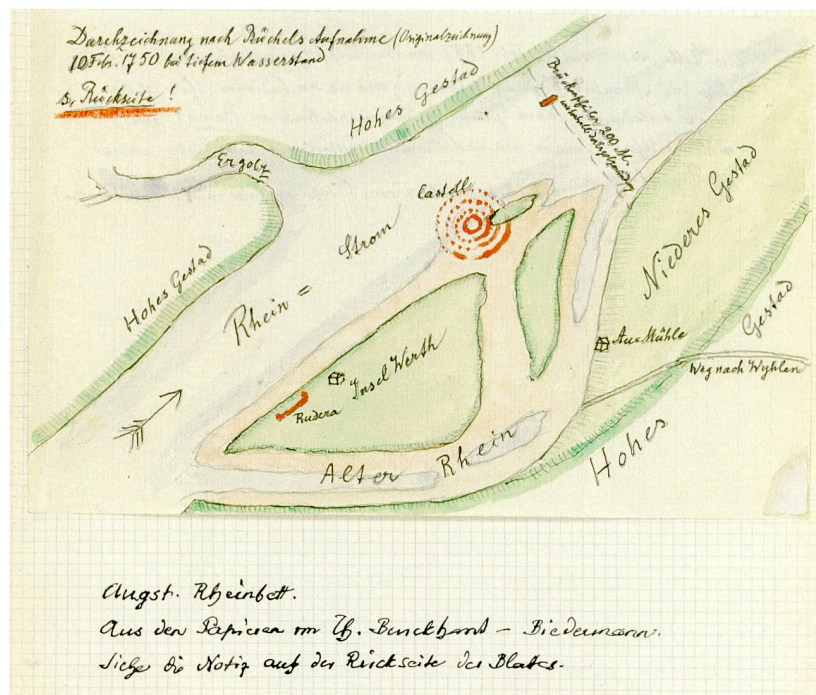 Durchzeichnung nach Büchels Aufnahme (Originalzeichnung)
10 Feb. 1750 bei tiefem Wasserstand
s. Rückseite!
Hohes Gestad
Ergolz
Castell.
Hohes Gestad
Rhein = Strom
200 M.
Niederes Gestad
Insel Werth
Rudera
Aue Mühle
Weg nach Wyhlen
Alter Rhein
Hohes Gestad
Augst. Rheinbett.
Aus den Papieren von Th. Burckhardt – Biedermann.
Siehe die Notiz auf der Rückseite des Blattes.